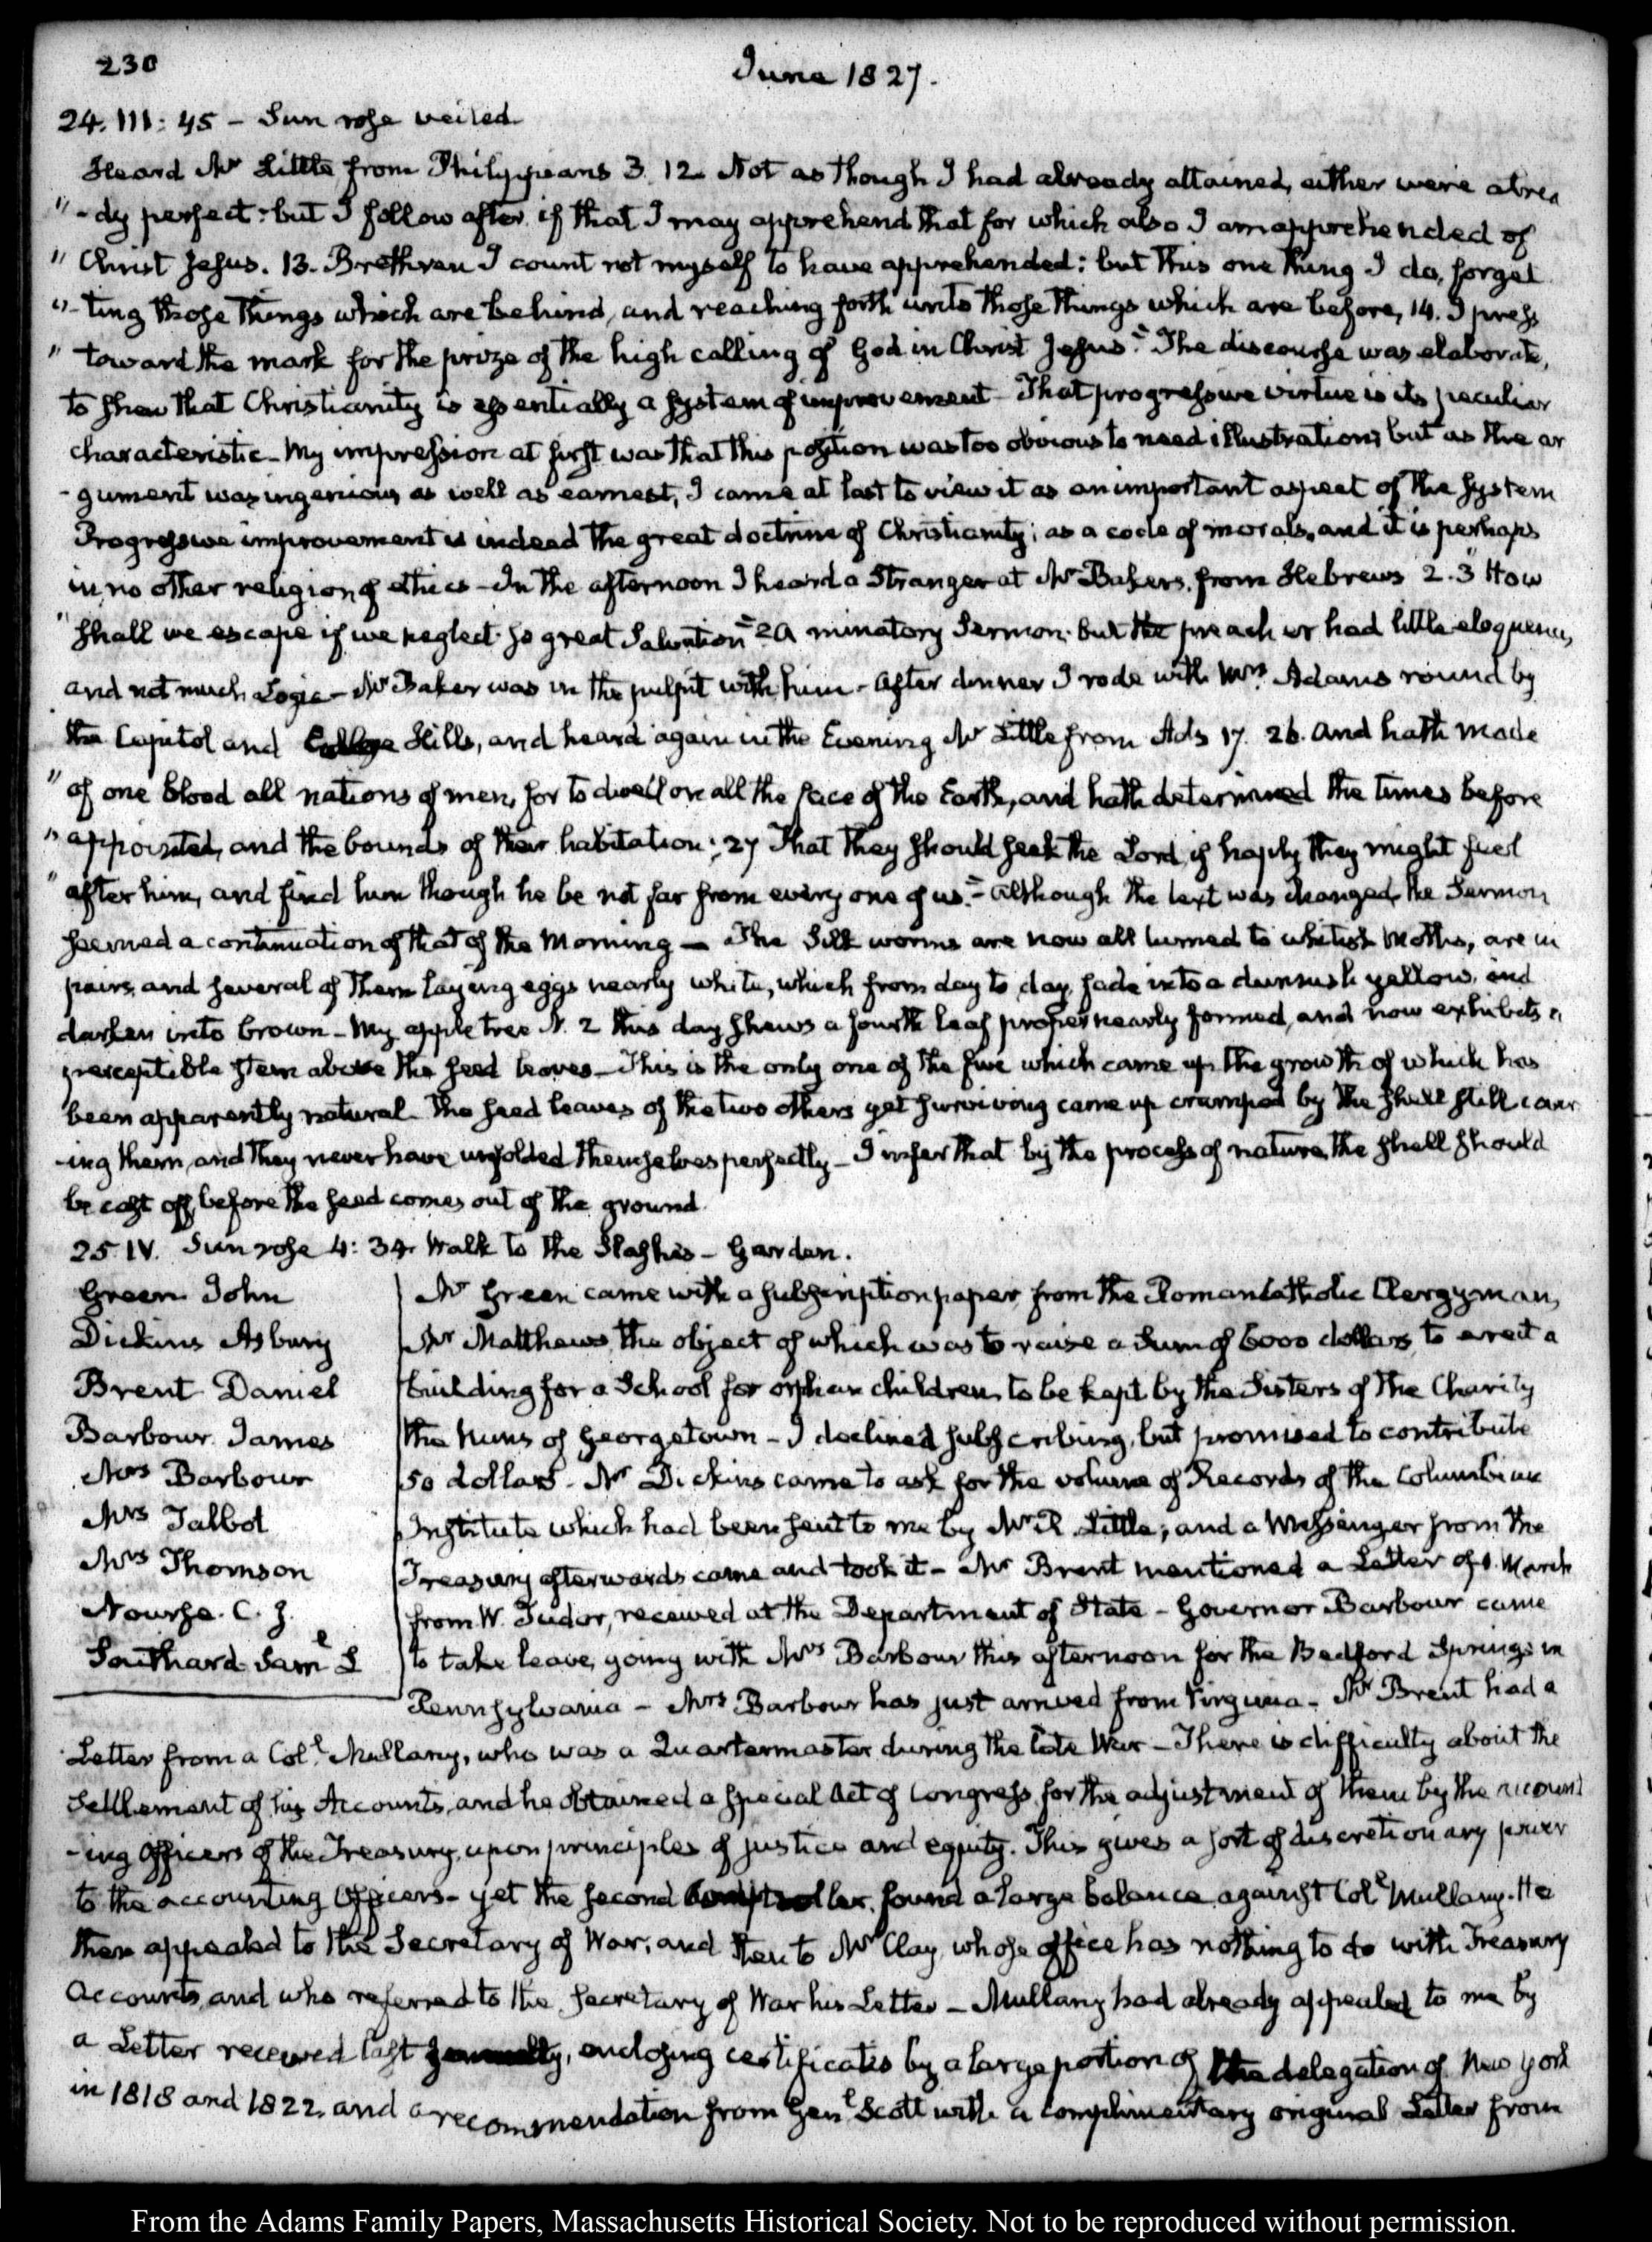 230
June 1827.
24. III: 45 - Sun rose veiled.
Heard Mr Little from Philippians 3. 12. Not as though I had already attained, either were alrea
"-dy perfect: but I follow after, if that I may apprehend that for which also I am apprehended of
" Christ Jesus. 13. Brethren I count not myself to have apprehended: but this one thing I do, forget
"-ting those things which are behind, and reaching forth unto those things which are before, 14. I press
" toward the mark for the prize of the high calling of God in Christ Jesus." The discourse was elaborate,
to shew that Christianity is essentially a system of improvement - That progressive virtue is its peculiar
characteristic - My impression at first was that this position was too obvious to need illustration; but as the ar
-gument was ingenious as well as earnest, I came at last to view it as an important aspect of the system
Progressive improvement is indeed the great doctrine of Christianity; as a code of morals, and it is perhaps
in no other religion of ethics - In the afternoon I heard a Stranger at Mr Baker's, from Hebrews 2. 3 "How
" shall we escape if we neglect so great Salvation" A minatory Sermon: but the preacher had little eloquence,
and not much Logic - Mr Baker was in the pulpit with him - After dinner I rode with Mrs Adams round by
the Capitol and College Hills, and heard again in the Evening Mr Little from Acts 17. 26. And hath made
" of one blood all nations of men, for to dwell on all the face of the Earth, and hath determined the times before
" appointed, and the bounds of their habitation; 27 That they should seek the Lord, if haply they might feel
" after him, and find him though he be not far from every one of us." Although the text was changed, the Sermon
seemed a continuation of that of the Morning - The Silk worms are now all turned to whitish Moths, are in
pairs, and several of them laying eggs nearly white, which from day to day, fade into a dunnish yellow, and
darken into brown - My apple tree N. 2 this day shews a fourth leaf proper nearly formed, and now exhibits a
perceptible stem above the seed leaves - This is the only one of the five which came up, the growth of which has
been apparently natural. The seed leaves of the two others yet surviving came up cramped by the shell still
-ing them, and they never have unfolded themselves perfectly - I infer that by the process of nature, the shell should
be cast off, before the seed comes out of the ground.
25. IV. Sun rose 4: 34. Walk to the Slashes - Garden.
Green John
Dickins Asbury
Brent Daniel
Barbour James
Mrs Barbour
Mrs Talbot
Mrs Thomson
Nourse. C. J.
Southard Saml L
Mr Green came with a subscription paper, from the Roman Catholic Clergyman,
Mr Matthews, the object of which was to raise a sum of 6000 dollars, to erect a
building for a School for orphan children, to be kept by the Sisters of the Charity
the Nuns of Georgetown - I declined subscribing, but promised to contribute
50 dollars - Mr Dickins came to ask for the volume of Records of the Columbian
Institute which had been sent to me by Mr R. Little; and a Messenger from the
Treasury afterwards came and took it - Mr Brent mentioned a Letter of 1. March
from W. Tudor, received at the Department of State - Governor Barbour came
to take leave, going with Mrs Barbour this afternoon for the Bedford Springs in
Pennsylvania - Mrs Barbour has just arrived from Virginia - Mr Brent had a
Letter from a Coll Mullany, who was a Quartermaster during the late War - There is difficulty about the
settlement of his Accounts, and he obtained a special Act of Congress, for the adjustment of them by the account
-ing Officers of the Treasury, upon principles of justice and equity. This gives a sort of discretionary power
to the accounting Officers - yet the second Comptroller, found a large balance against Coll Mullany. He
then appealed to the Secretary of War, and then to Mr Clay, whose office has nothing to do with Treasury
Accounts, and who referred to the Secretary of War his Letter - Mullany had already appealed to me by
a Letter received last, enclosing certificates by a large portion of the delegation of New York
in 1818 and 1822, and a recommendation from Genl Scott with a complimentary original Letter from
From the Adams Family Papers, Massachusetts Historical Society. Not to be reproduced without permission.